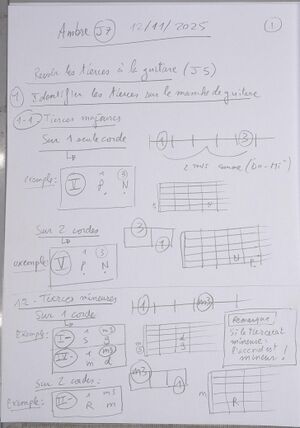 Ambre J7 12/11/2025 1
Revoir les tierces à la guitare (J5)
1 Identifier les tierces sur le manche de guitare
1-1 Tierces majeures
Sur 1 seule corde
1 3
exemple: V 1 3
P N
2 tons comme (Do-Mi)
Sur 2 cordes
3
1
exemple: V 1 3
P N
N
P
12- Tierces mineures
Sur 1 corde
1 m3
Exemple: I- 1 m3
S g
IV- 1 m3
m d
m d
S g
Remarque
Si la tierce est
mineure
l'accord est
mineur!
Sur 2 cordes:
m3
1
Exemple: II- 1 m3
R m
m
R